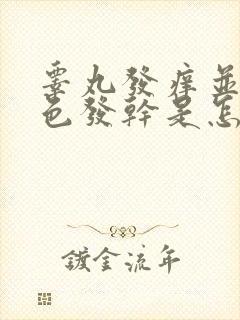 睾丸發痒並
色發幹是怎
鍍金流年